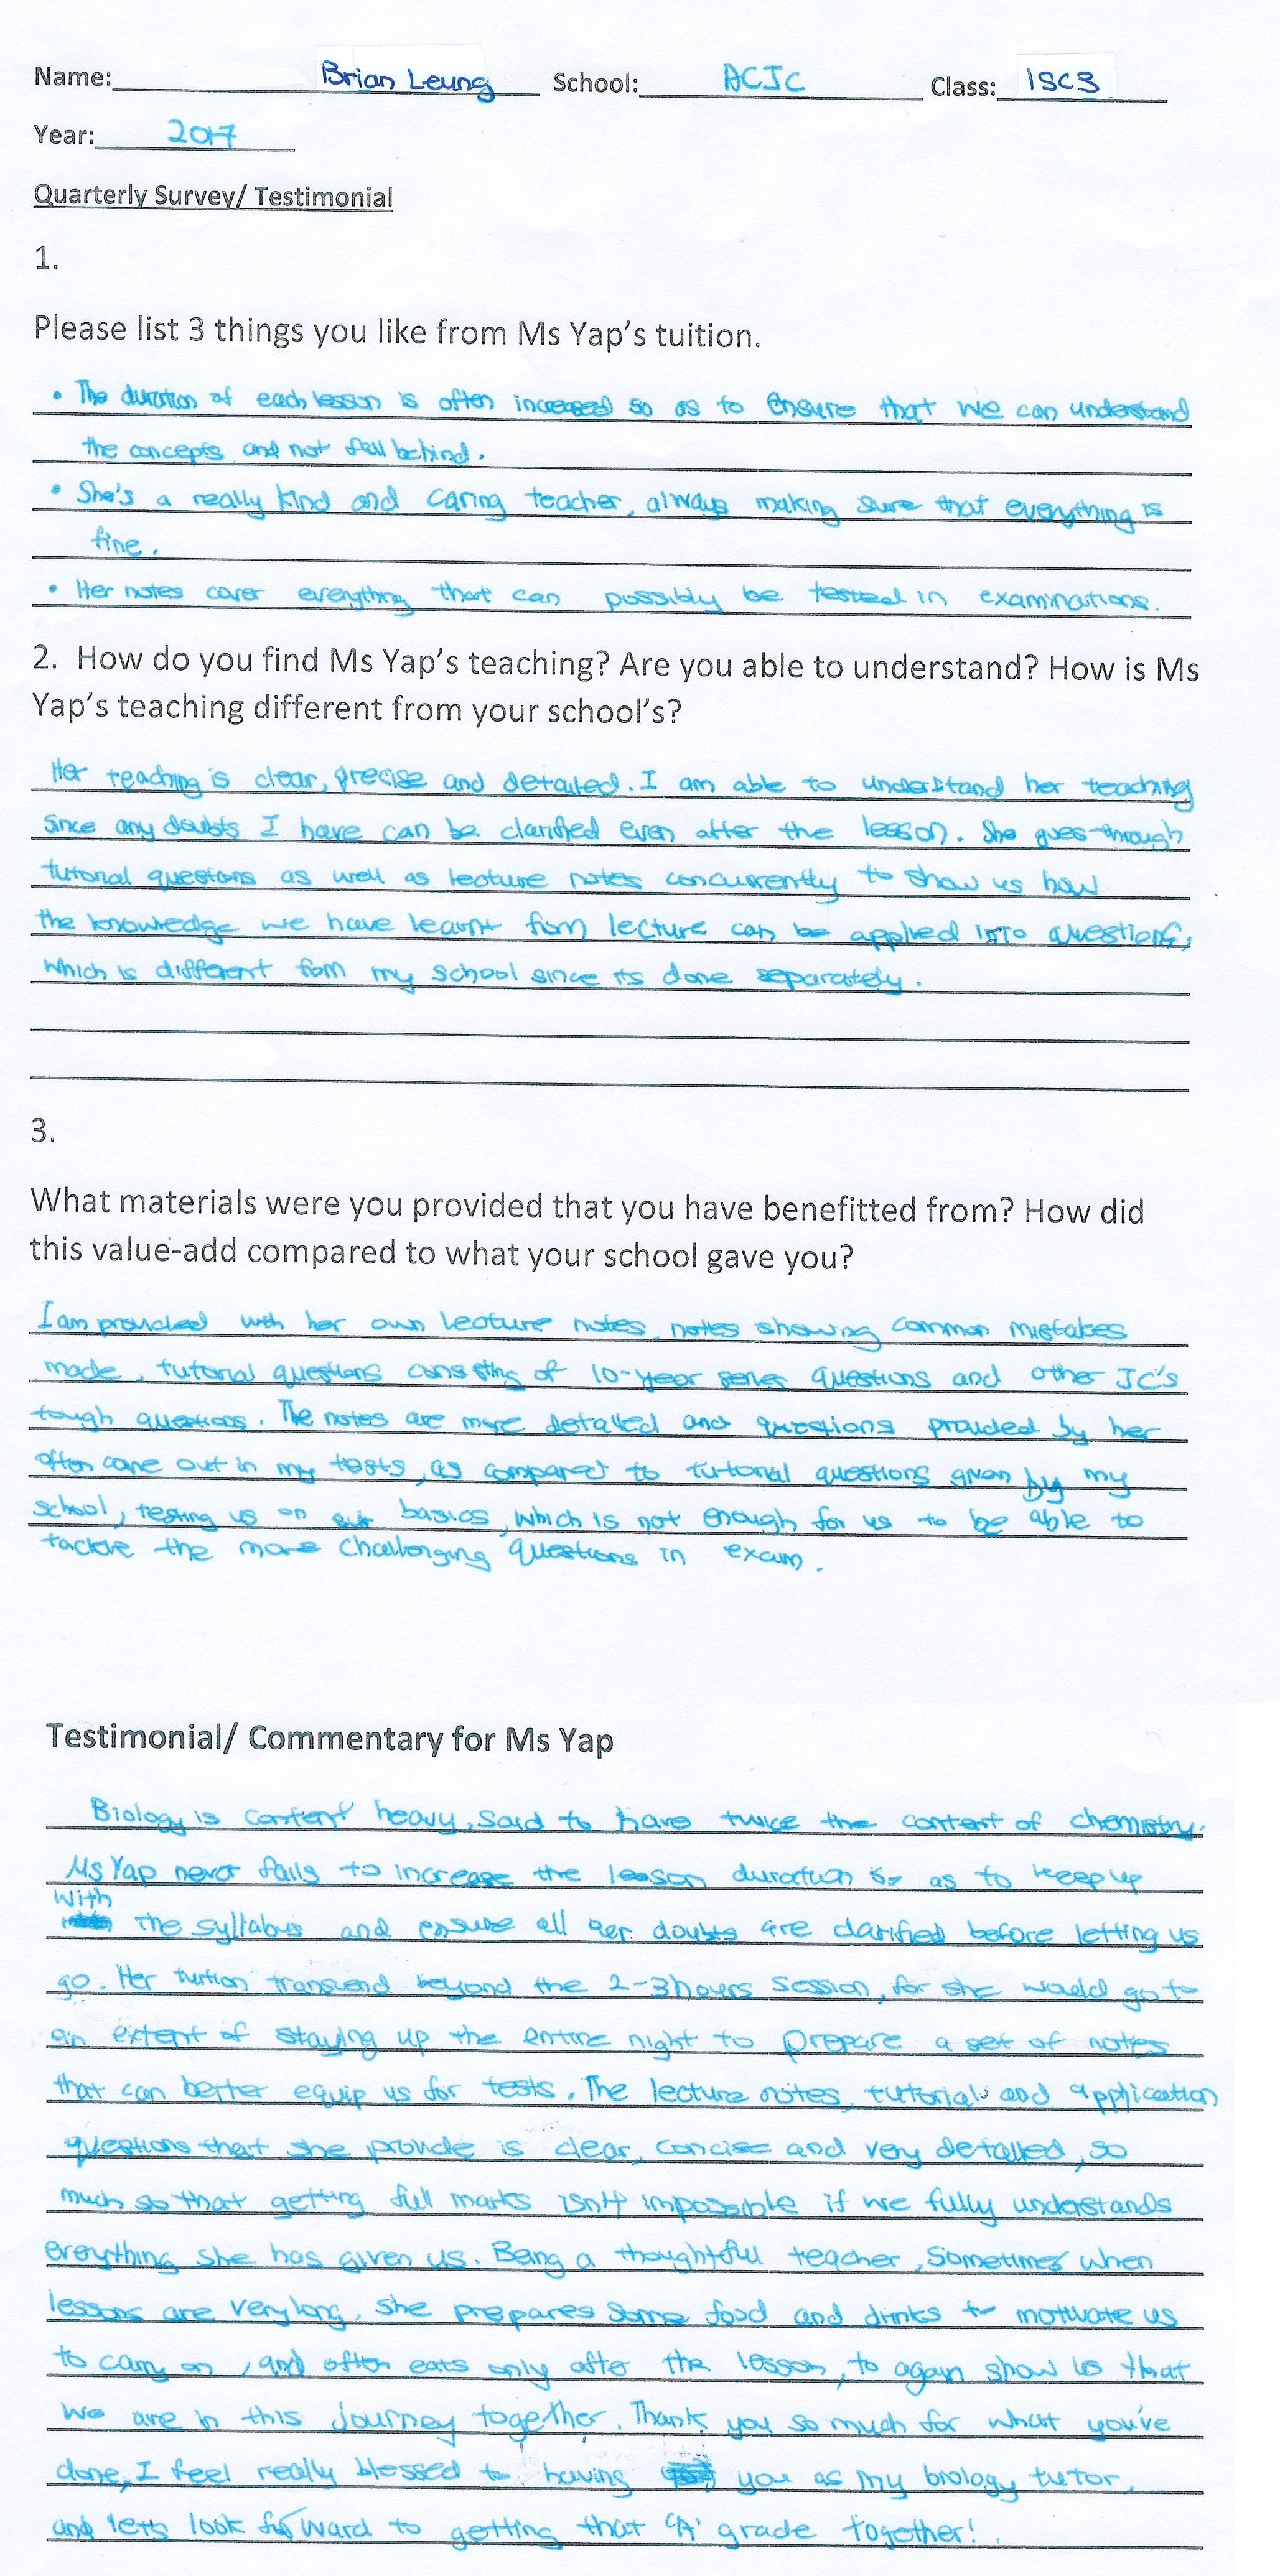 Name: Brian Leung School: ACJC Class: 1SC3
Year: 2017
Quarterly Survey/ Testimonial
1.
Please list 3 things you like from Ms Yap's tuition.
• The duration of each lesson is often increased so as to ensure that we can understand
the concepts and not fall behind.
• She's a really kind and caring teacher, always making sure that everything is
fine.
• Her notes cover everything that can possibly be tested in examinations.
2. How do you find Ms Yap's teaching? Are you able to understand? How is Ms
Yap's teaching different from your school's?
Her teaching is clear, precise and detailed. I am able to understand her teaching
since any doubts I have can be clarified even after the lesson. She goes through
tutorial questions as well as lecture notes concurrently to show us how
the knowledge we have learnt from lecture can be applied into questions,
which is different from my school since its done separately.
3.
What materials were you provided that you have benefitted from? How did
this value-add compared to what your school gave you?
I am provided with her own lecture notes, notes showing common mistakes
made, tutorial questions consisting of 10-year series questions and other JC's
tough questions. The notes are more detailed and questions provided by her
often come out in my tests, as compared to tutorial questions given by my
school, testing us on basics, which is not enough for us to be able to
tackle the more challenging questions in exam.
Testimonial/ Commentary for Ms Yap
Biology is content heavy, said to have twice the content of chemistry.
Ms Yap never fails to increase the lesson duration so as to keep up
with the syllabus and ensure all our doubts are clarified before letting us
go. Her tuition transcend beyond the 2-3hours session, for she would go to
an extent of staying up the entire night to prepare a set of notes
that can better equip us for tests. The lecture notes, tutorials and application
questions that she provide is clear, concise and very detailed, so
much so that getting full marks isn't impossible if we fully understands
everything she has given us. Being a thoughtful teacher, sometimes when
lessons are very long, she prepares some food and drinks to motivate us
to carry on, and often eats only after the lesson, to again show us that
we are in this journey together. Thank you so much for what you've
done, I feel really blessed to having you as my biology tutor,
and lets look forward to getting that 'A' grade together!